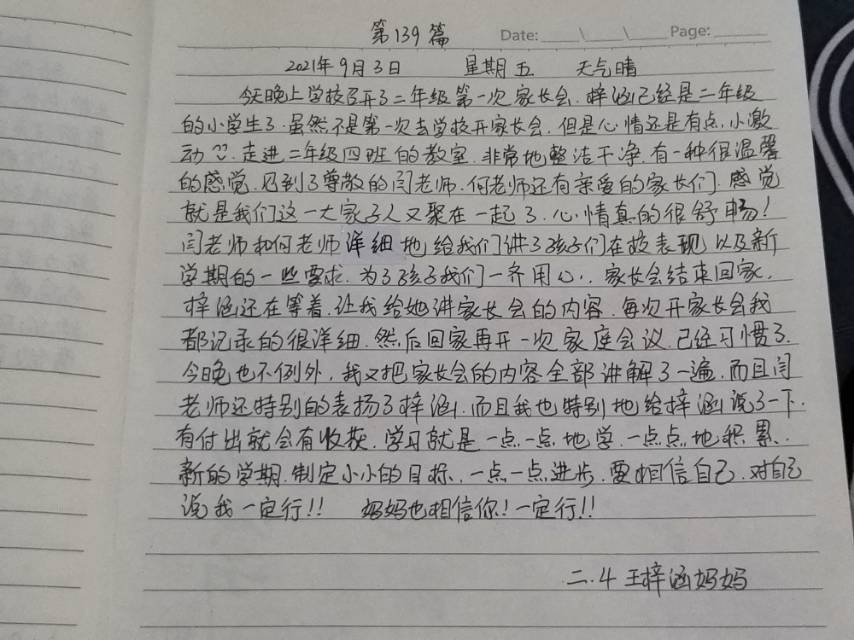 第139篇 Date: Page:
2021年9月3日 星期五 天气晴
今天晚上学校召开了二年级第一次家长会.梓涵已经是二年级
的小学生了.虽然不是第一次去学校开家长会.但是心情还是有点小激
动.走进二年级四班的教室.非常地整洁干净.有一种很温馨
的感觉.见到了尊敬的闫老师.何老师还有亲爱的家长们.感觉
就是我们这一大家子人又聚在一起了.心情真的很舒畅!
闫老师和何老师详细地给我们讲了孩子们在校表现以及新
学期的一些要求.为了孩子我们一齐用心.家长会结束回家.
梓涵还在等着.让我给她讲家长会的内容.每次开家长会我
都记录的很详细.然后回家再开一次家庭会议.已经习惯了.
今晚也不例外.我又把家长会的内容全部讲解了一遍.而且闫
老师还特别的表扬了梓涵.而且我也特别地给梓涵说了一下.
有付出就会有收获.学习就是一点一点地学.一点点地积累.
新的学期.制定小小的目标.一点一点进步.要相信自己.对自己
说我一定行!! 妈妈也相信你!一定行!!
二.4 王梓涵妈妈